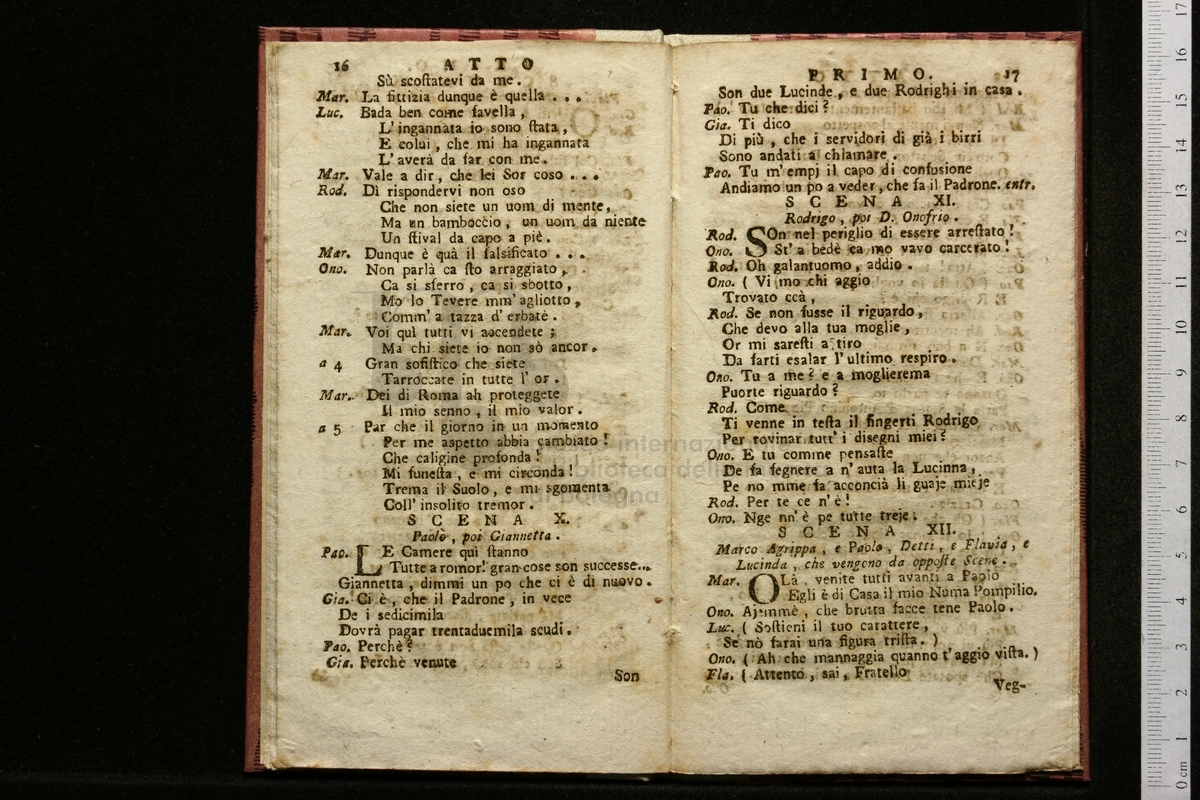 16 ATTO
Sù scoſtatevi da me.
Mar. La fittizia dunque è quella . . .
Luc. Bada ben come favella,
L' ingannata io sono ſtata,
E colui, che mi ha ingannata
L' averà da far con me.
Mar. Vale a dir, che lei Sor coso . . .
Rod. Dì rispondervi non oso
Che non siete un uom di mente,
Ma un bamboccio, un uom da niente
Un ſtival da capo a piè.
Mar. Dunque è quà il falsificato . . .
Ono. Non parlà ca ſto arraggiato,
Ca si sferro, ca si sbotto,
Mo lo Tevere mm' agliotto,
Comm' a tazza d' erbatè.
Mar. Voi quì tutti vi accendete;
Ma chi siete io non sò ancor.
a 4 Gran sofiſtico che siete
Tarroccate in tutte l' or.
Mar. Dei di Roma ah proteggete
Il mio senno, il mio valor.
a 5 Par che il giorno in un momento
Per me aspetto abbia cambiato!
Che caligine profonda!
Mi funeſta, e mi circonda!
Trema il Suolo, e mi sgomenta
Coll' insolito tremor.
SCENA X.
Paolo, poi Giannetta.
Pao. LE Camere quì ſtanno
Tutte a romor! gran cose son successe...
Giannetta, dimmi un po che ci è di nuovo.
Gia. Ci è, che il Padrone, in vece
De i sedicimila
Dovrà pagar trentaduemila scudi.
Pao. Perchè?
Gia. Perchè venute
Son
PRIMO. 17
Son due Lucinde, e due Rodrighi in casa.
Pao. Tu che dici?
Gia. Ti dico
Di più, che i servidori di già i birri
Sono andati a chiamare.
Pao. Tu m' empj il capo di confusione
Andiamo un po a veder, che fa il Padrone. entr.
SCENA XI.
Rodrigo, poi D. Onofrio.
Rod. SOn nel periglio di essere arreſtato!
Ono. St' a bedè ca mo vavo carcerato!
Rod. Oh galantuomo, addio.
Ono. ( Vi mo chi aggio
Trovato ccà,
Rod. Se non fusse il riguardo,
Che devo alla tua moglie,
Or mi sareſti a tiro
Da farti esalar l' ultimo respiro.
Ono. Tu a me? e a moglierema
Puorte riguardo?
Rod. Come
Ti venne in teſta il fingerti Rodrigo
Per rovinar tutt' i disegni miei?
Ono. E tu comme pensaſte
De fa fegnere a n' auta la Lucinna,
Pe no mme fa acconcià li guaje mieje
Rod. Per te ce n' è!
Ono. Nge nn' è pe tutte treje.
SCENA XII.
Marco Agrippa, e Paolo, Detti, e Flavia, e
Lucinda, che vengono da oppoſte Scene.
Mar. OLà, venite tutti avanti a Papio
Egli è di Casa il mio Numa Pompilio.
Ono. Ajemmè, che brutta facce tene Paolo.
Luc. ( Soſtieni il tuo carattere,
Se nò farai una figura triſta. )
Ono. ( Ah che mannaggia quanno t' aggio viſta. )
Fla. ( Attento, sai, Fratello
Veg-